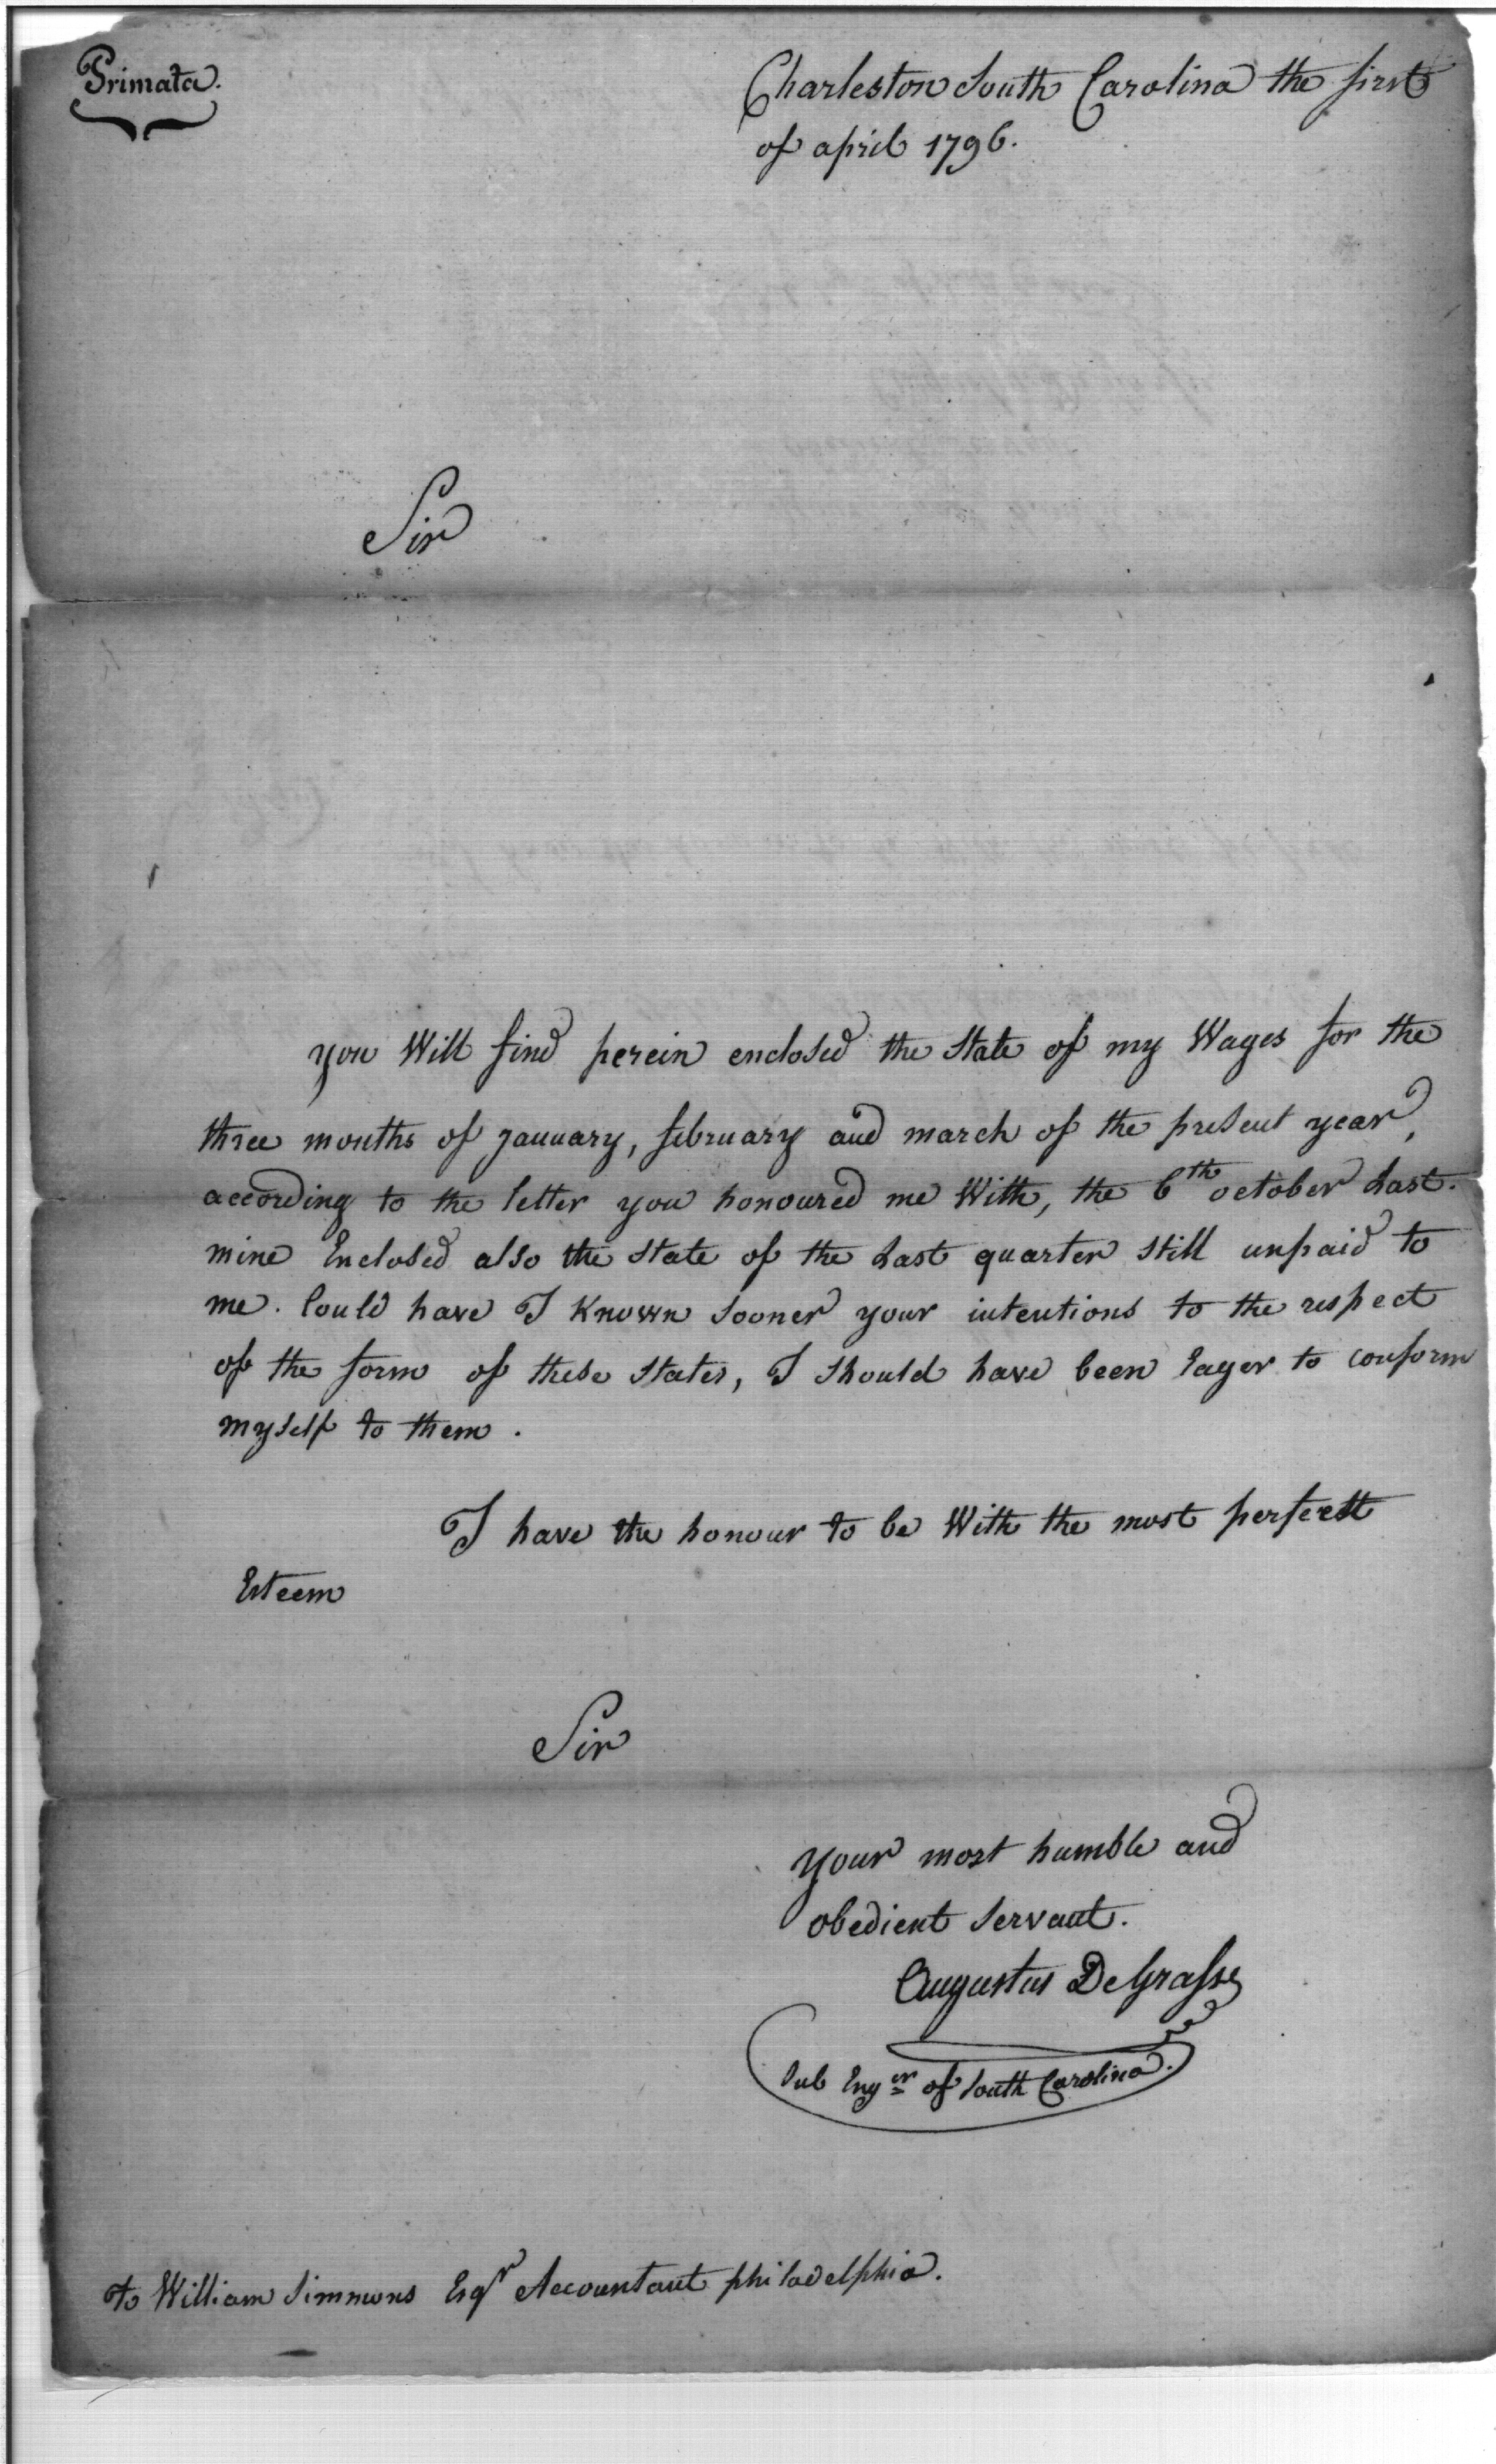 Primata.
Charleston South Carolina the first
of april 1796.
Sir
you Will find herein enclosed the State of my Wages for the
three months of january, february and march of the present year,
according to the letter you honoured me With, the 6th october Last.
mine Enclosed also the State of the Last quarter still unpaid to
me. Could have I Known Sooner your intentions to the respect
of the form of these States, I Should have been Eager to conform
myself to them.
I have the honour to be With the most perfectt
Esteem
Sir
your most humble and
obedient Servant.
Augustus De Grasse
Sub Enger of South Carolina.
to William Simmons Esqr Accountant philadelphia.